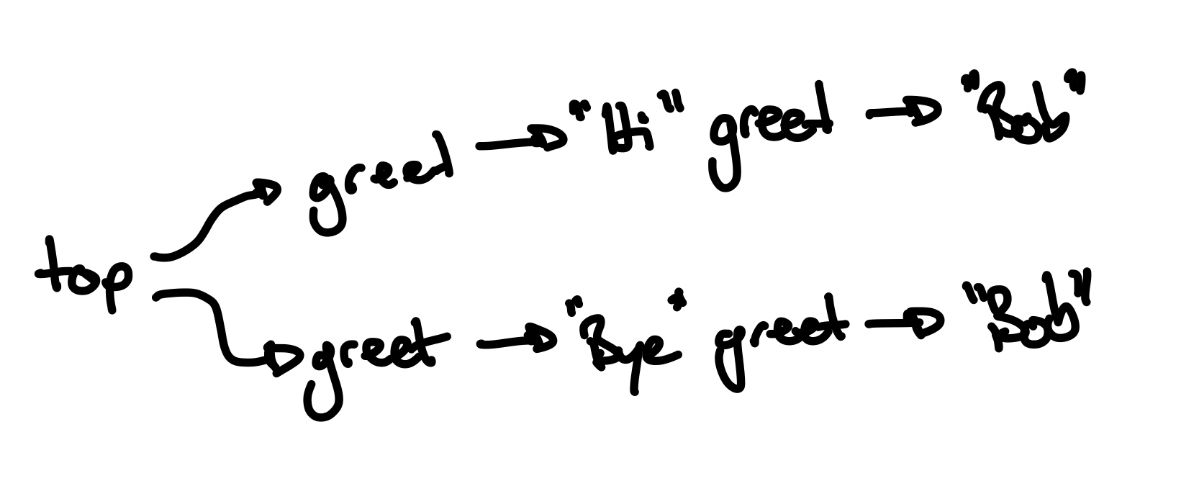 greet → "Hi" greet → "Bob"
top
greet → "Bye" greet → "Bob"